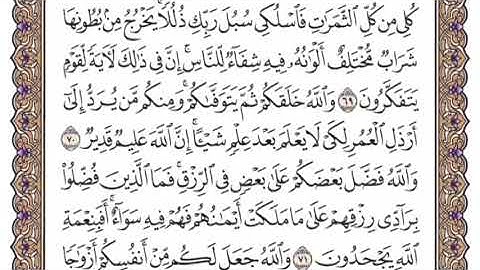 كُلِى مِن كُلِّ ٱلثَّمَرَٰتِ فَٱسْلُكِى سُبُلَ رَبِّكِ ذُلُلًا ۚ يَخْرُجُ مِنۢ بُطُونِهَا
شَرَابٌ مُّخْتَلِفٌ أَلْوَٰنُهُۥ فِيهِ شِفَآءٌ لِّلنَّاسِ ۗ إِنَّ فِى ذَٰلِكَ لَـَٔايَةً لِّقَوْمٍ
يَتَفَكَّرُونَ ٦٩ وَٱللَّهُ خَلَقَكُمْ ثُمَّ يَتَوَفَّىٰكُمْ ۚ وَمِنكُم مَّن يُرَدُّ إِلَىٰٓ
أَرْذَلِ ٱلْعُمُرِ لِكَىْ لَا يَعْلَمَ بَعْدَ عِلْمٍ شَيْـًٔا ۚ إِنَّ ٱللَّهَ عَلِيمٌ قَدِيرٌ ٧٠
وَٱللَّهُ فَضَّلَ بَعْضَكُمْ عَلَىٰ بَعْضٍ فِى ٱلرِّزْقِ ۚ فَمَا ٱلَّذِينَ فُضِّلُوا۟
بِرَآدِّى رِزْقِهِمْ عَلَىٰ مَا مَلَكَتْ أَيْمَٰنُهُمْ فَهُمْ فِيهِ سَوَآءٌ ۚ أَفَبِنِعْمَةِ
ٱللَّهِ يَجْحَدُونَ ٧١ وَٱللَّهُ جَعَلَ لَكُم مِّنْ أَنفُسِكُمْ أَزْوَٰجًا